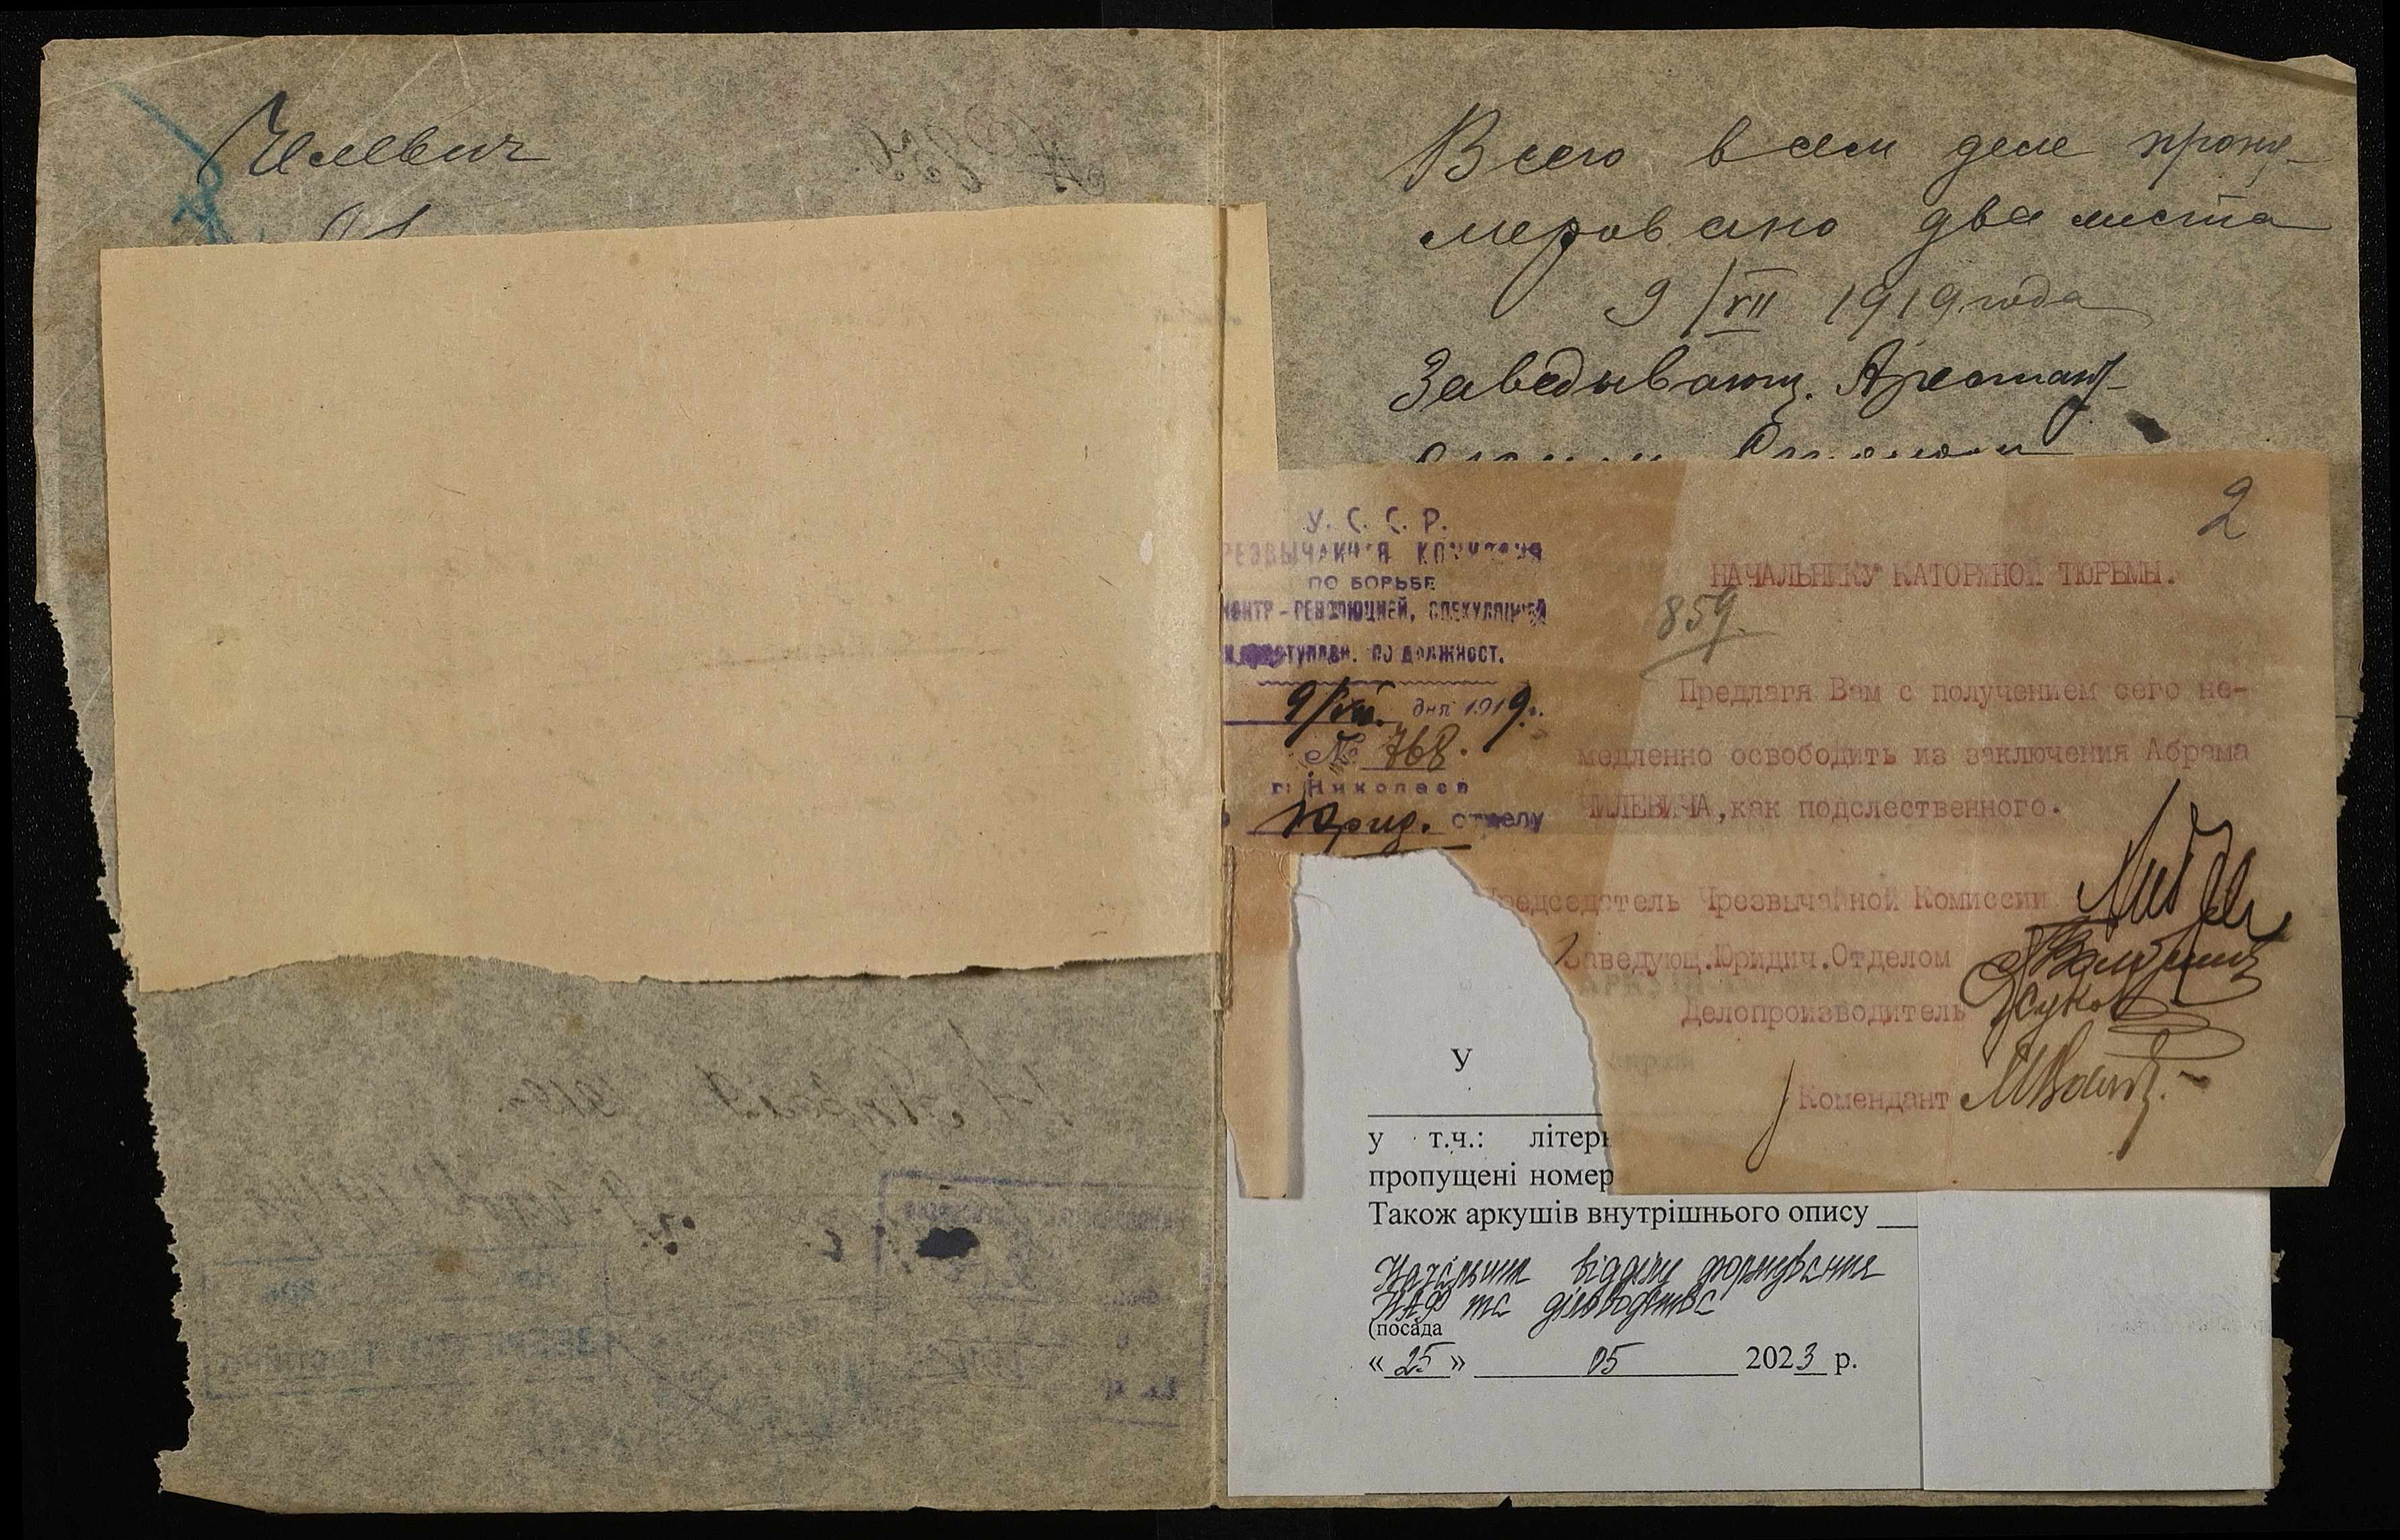 Чилевич
Всего в сем деле прону-
меровано два листа
9/VII 1919 года
Заведывающ. Арестант-
2
У. С. С. Р.
РЕЗВЫЧАЙНАЯ КОМИССИЯ
ПО БОРЬБЕ
КОНТР-РЕВОЛЮЦИЕЙ, СПЕКУЛЯЦИЕЙ
И ПРЕСТУПЛЕН. ПО ДОЛЖНОСТ.
9/VII. дня 1919г.
№ 768.
г. Николаев
Юрид. отделу
НАЧАЛЬНИКУ КАТОРЖНОЙ ТЮРЬМЫ.
859.
Предлагя Вам с получением сего не-
медленно освободить из заключения Абрама
ЧИЛЕВИЧА, как подслественного.
Председатель Чрезвычайной Комиссии
Заведующ.Юридич.Отделом
Делопроизводитель
Комендант
У
у т.ч.: літерн
пропущені номер
Також аркушів внутрішнього опису
Начальник відділу формування
НАФ та діловодства
(посада
« 25 » 05 2023 р.